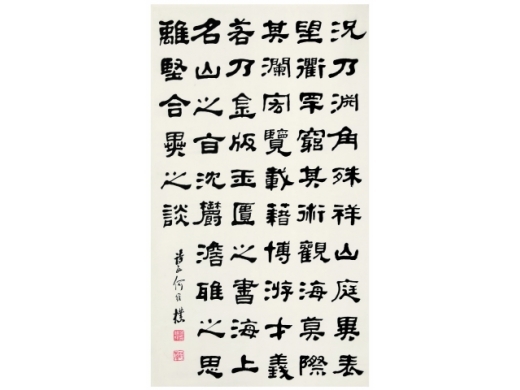 况乃渊角殊祥山庭異表
望衢罕窮其術觀海莫際
其瀾宏覽載籍博游才義
若乃金版玉匱之書海上
名山之旨沈鬱澹雅之思
離堅合異之談
何